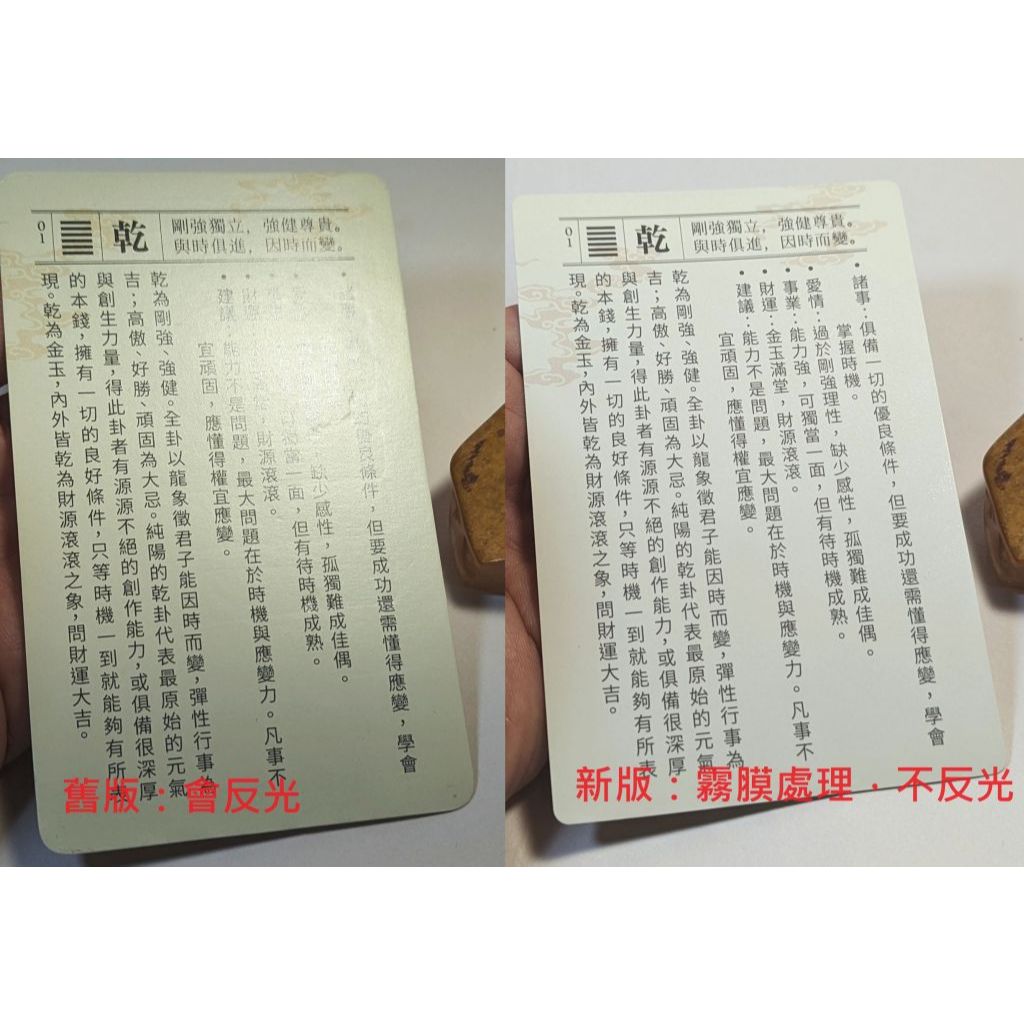 01
乾
剛強獨立，強健尊貴。
與時俱進，因時而變。
良條件，但要成功還需懂得應變，學會
缺少感性，孤獨難成佳偶。
獨當一面，但有待時機成熟。
財源滾滾。
• 建議：能力不是問題，最大問題在於時機與應變力。凡事不
宜頑固，應懂得權宜應變。
乾為剛強、強健。全卦以龍象徵君子能因時而變，彈性行事為
吉；高傲、好勝、頑固為大忌。純陽的乾卦代表最原始的元氣
與創生力量，得此卦者有源源不絕的創作能力，或俱備很深厚
的本錢，擁有一切的良好條件，只等時機一到就能夠有所表
現。乾為金玉，內外皆乾為財源滾滾之象，問財運大吉。
舊版：會反光
01
乾
剛強獨立，強健尊貴。
與時俱進，因時而變。
• 諸事：俱備一切的優良條件，但要成功還需懂得應變，學會
掌握時機。
• 愛情：過於剛強理性，缺少感性，孤獨難成佳偶。
• 事業：能力強，可獨當一面，但有待時機成熟。
• 財運：金玉滿堂，財源滾滾。
• 建議：能力不是問題，最大問題在於時機與應變力。凡事不
宜頑固，應懂得權宜應變。
乾為剛強、強健。全卦以龍象徵君子能因時而變，彈性行事為
吉；高傲、好勝、頑固為大忌。純陽的乾卦代表最原始的元氣
與創生力量，得此卦者有源源不絕的創作能力，或俱備很深厚
的本錢，擁有一切的良好條件，只等時機一到就能夠有所表
現。乾為金玉，內外皆乾為財源滾滾之象，問財運大吉。
新版：霧膜處理，不反光